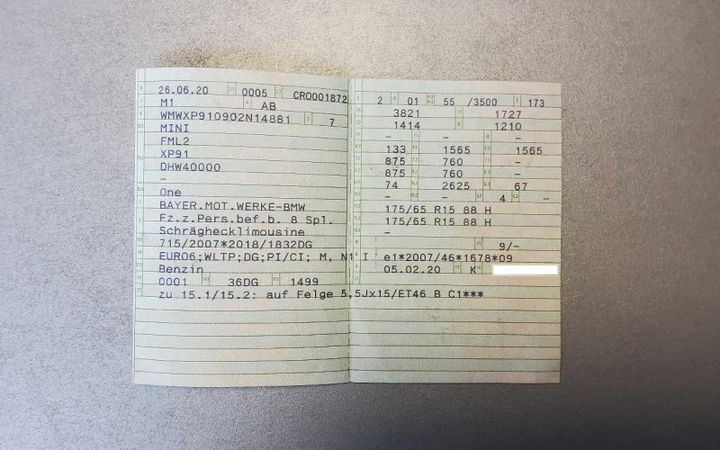 26.06.20 0005 CRO001872
M1 AB
WMWXP910902N14881 7
MINI
FML2
XP91
DHW40000
–
One
BAYER.MOT.WERKE-BMW
Fz.z.Pers.bef.b. 8 Spl.
Schräghecklimousine
715/2007*2018/1832DG
EURO6;WLTP;DG;PI/CI; M, N1 I
Benzin
0001 36DG 1499
zu 15.1/15.2: auf Felge 5,5Jx15/ET46 B C1***
2 01 55 /3500 173
3821 1727
1414 1210
– – –
133 1565 1565
875 760 –
875 760 –
74 2625 67
– – 4 –
175/65 R15 88 H
175/65 R15 88 H
9/–
e1*2007/46*1678*09
05.02.20 K